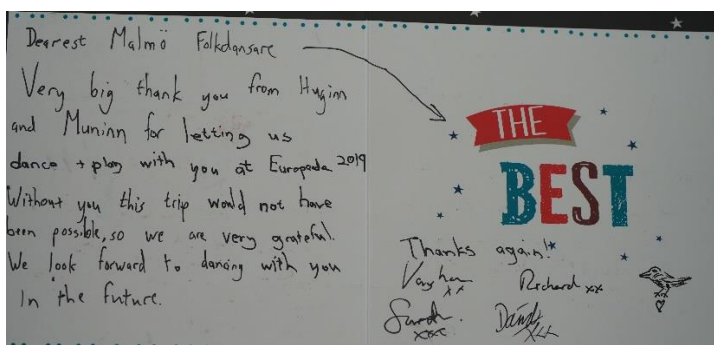 Dearest Malmö Folkdansare
Very big thank you from Hugin
and Muninn for letting us
dance + play with you at Europeada 2019
Without you this trip would not have
been possible, so we are very grateful.
We look forward to dancing with you
in the future.
THE
BEST
Thanks again!
Vaughan xx
Richard xx
Sarah xxx
David xxx